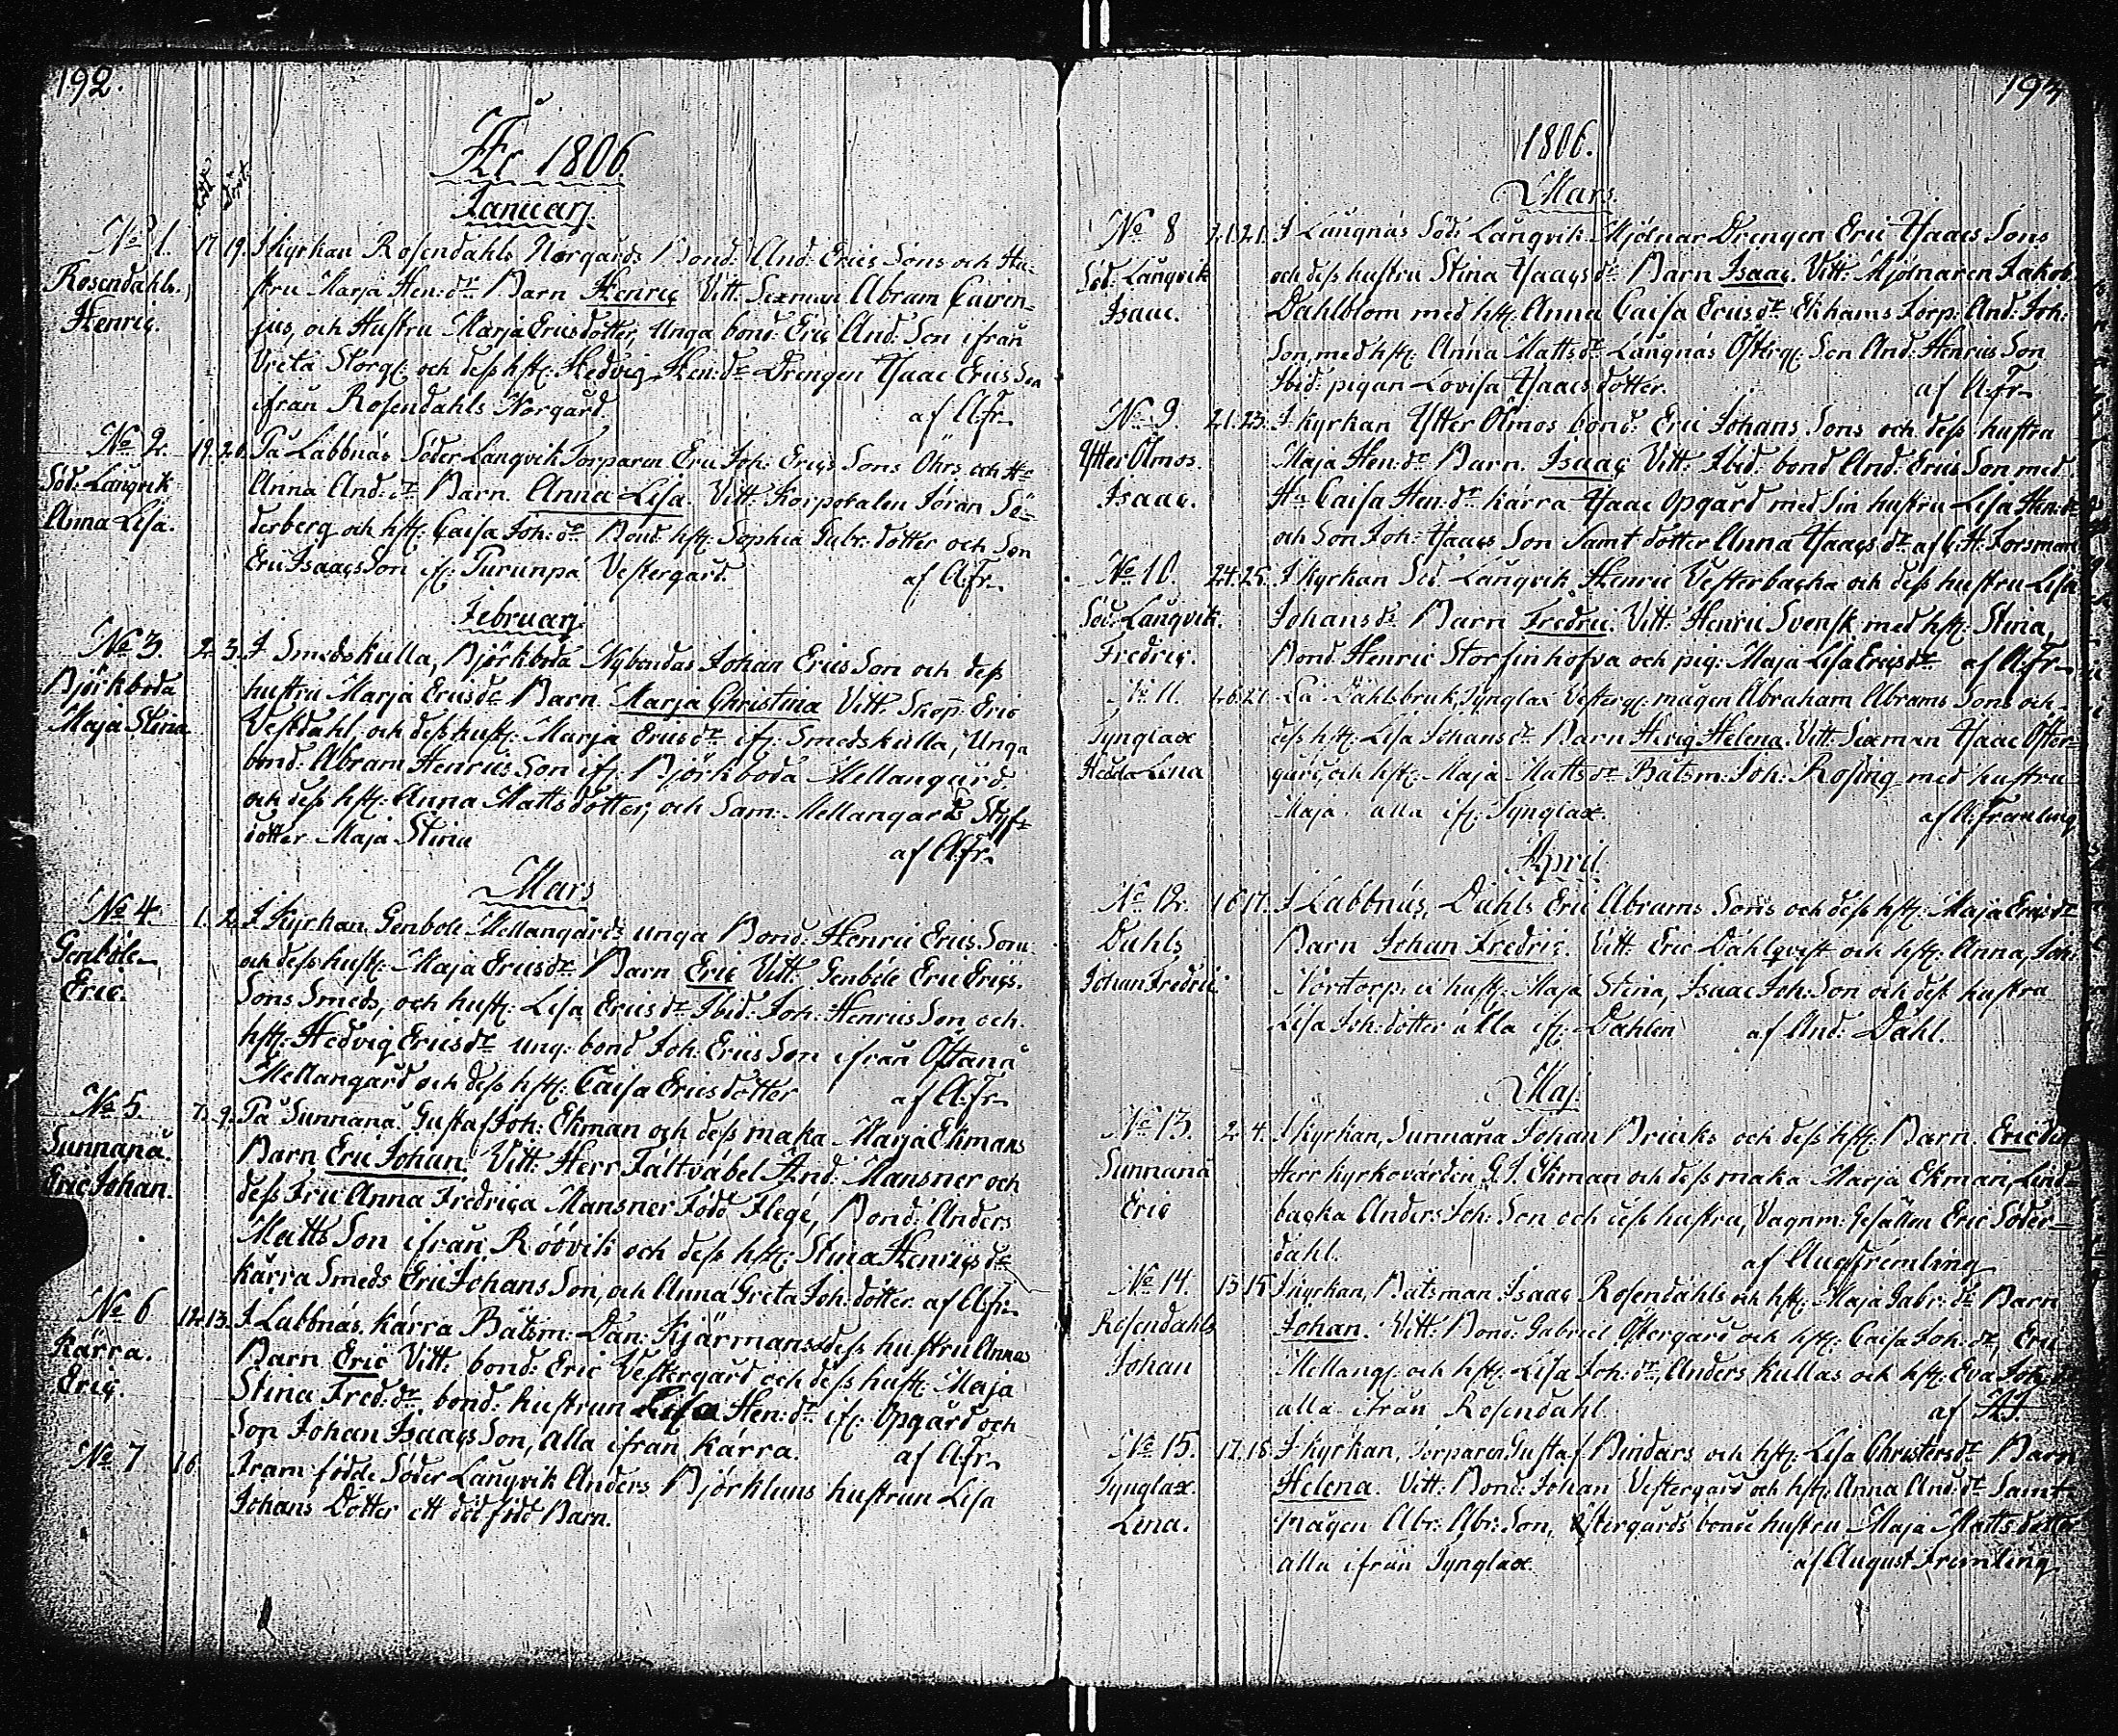 192.
År 1806.
Januarj.
född döpt
No 1. 17. 19. I Kyrkan Rosendahls Norgårds Bond: And: Erics Sons och Hu-
Rosendahls. stru Marja Hen: dr Barn Henric Vitt: Sexman Abram Cairen-
Henric. jus, och Hustru Marja Ericsdotter, Unga bond: Eric And: Son ifrån
Vreta Storg: och dess hst: Hedvig Hen: dr Drengen Isaac Erics Son
ifrån Rosendahls Norgård. af A: Fr.
No 2. 19. 20. På Labbnäs Söder Långvik Torparen Eric Joh: Erics Sons Öhrs och Ho
Söd: Långvik Anna And: dr Barn. Anna Lisa. Vitt: Korporalen Jöran Sö-
Anna Lisa. derberg och hst: Caisa Joh: dr Bond: hst: Sophia Gabr: dotter och Son
Eric Isaacs Son if: Purunpä Vestergård. af A: Fr.
Februarj.
No 3. 2. 3. I Smedskulla, Björkboda Nybondas Johan Erics Son och dess
Björkboda hustru Marja Ericsdr Barn Marja Christina Vitt: Eric
Maja Stina Vestdahl, och dess hust: Marja Ericsdr if: Smedskulla, Unga
bond: Abram Henrics Son if: Björkboda Mellangård,
och dess hst: Anna Mattsdotter, och Sam: Mellangårds Styf-
dotter Maja Stina af A: Fr.
Mars
No 4. 1. 2. I Kyrkan Genböle Mellangårds unga Bond: Henric Erics Sons
Genböle och dess hust: Maja Ericsdr Barn Eric Vitt: Genböle Eric Erics
Eric. Sons Smeds, och hust: Lisa Ericsdr Ibid: Joh: Henrics Son och
hst: Hedvig Ericsdr ung: bond Joh: Erics Son ifrån Östanå
Mellangård och dess hst: Caisa Ericsdotter af A: Fr.
No 5. 7. 9. På Sunnanå Gustaf Joh: Ekman och dess maka Marja Ekmans
Sunnanå. Barn Eric Johan. Vitt: Herr Fältväbel And: Mansner och
Eric Johan. dess Fru Anna Fredrica Mansner Född Flege, Bond: Anders
Matts Son ifrån Röövik och dess hst: Stina Henricsdr
Kärra Smeds Eric Johans Son, och Anna Greta Joh: dotter. af A: Fr.
No 6 12. 13. I Labbnäs, Kärra Båtsm: Dan: Kjärmans dess hustru Anna
Kärra. Barn Eric Vitt: bond: Eric Vestergård och dess hust: Maja
Eric. Stina Fred: dr, bond: hustrun Lisa Hen: dr if: Opgård och
Son Johan Isaacs Son, alla ifrån Kärra. af A: Fr.
No 7 16 Fram födde Söder Långvik Anders Björkluns hustrun Lisa
Johans Dotter ett död födt Barn.
1806.
Mars.
No 8 21. I Långnäs Söd: Långvik Mjölnar Drengen Eric Isaacs Sons
Söd: Långvik och dess hustru Stina Isaacsdr Barn Isaac. Vitt: Mjölnaren Jakob
Isaac. Dahlblom med hst: Anna Caisa Ericsdr Ekhams Torp: And: Joh:
Son, med hst: Anna Mattsdr Långnäs Österg: Son And: Henrics Son
Ibid: pigan Lovisa Isaacs dotter. af A: Fr.
No 9. 21. 23. I kyrkan Ytter Ölmos bond: Eric Johans Sons och dess hustru
Ytter Ölmos. Maja Hen: dr Barn. Isaac Vitt: Ibid: bond And: Erics Son med
Isaac. Ho Caisa Hen: dr Kärra Isaac Opgård med sin hustru Lisa Hen: dr
och Son Joh: Isaacs Son Samt dotter Anna Isaacsdr af C: H: Forsman
No 10. 24. 25. I kyrkan Söd: Långvik Henric Vesterbacka och dess hustru Lisa
Söd: Långvik. Johansdr Barn Fredric. Vitt: Henric Svensk med hst: Stina,
Fredric. Bond: Henric Storfinhofva och pig: Maja Lisa Ericsdr af A: Fr.
No 11. På Dahlsbruk, Tynglax Vesterg: mågen Abraham Abrams Sons och
Tynglax dess hst: Lisa Johansdr Barn Hevig Helena. Vitt: Sexman Isaac Öster-
Hedda Lena gård, och hst: Maja Mattsdr Båtsm: Joh: Rosing med hustru
Maja alla if: Tynglax. af A: Fremling
April.
No 12. 16 17. I Labbnäs, Dahls Eric Abrams Sons och dess hst: Maja Ericsdr
Dahls Barn Johan Fredric. Vitt: Eric Dahlqvist och hst: Anna, Joh:
Johan Fredric Norrtorp: hust: Maja Stina, Isaac Joh: Son och dess hustru
Lisa Joh: dotter alla if: Dahlen af And: Dahl.
Maj.
No 13. 2. 4. I Kyrkan, Sunnanå Johan Brinks och dess hst: Barn. Eric
Sunnanå Herr Kyrkovärden G. J. Ekman och dess maka Marja Ekman, Lind-
Eric backa Anders Joh: Son och dess hustru, Vagnm: Gesällen Eric Söder-
dahl. af Aug Fremling
No 14. 13 15. I kyrkan, Båtsman Isaac Rosendahls och hst: Maja Gabr: dr Barn
Rosendahls Johan. Vitt: Bond: Gabriel Östergård och hst: Caisa Joh: dr, Eric
Johan Mellang: och hst: Lisa Joh: dr, Anders Kullas och hst: Eva Joh: dr
alla ifrån Rosendahl. af
No 15. 17. 18. I kyrkan, Torparen Gustaf Bindars och hst: Lisa Christersdr Barn
Tynglax. Helena. Vitt: Bond: Johan Vestergård och hst: Anna And: dr Samt
Lena. mågen Abr: Abr: Son, Östergårds bonde hustru Maja Mattsdotter
alla ifrån Tynglax. af August Fremling